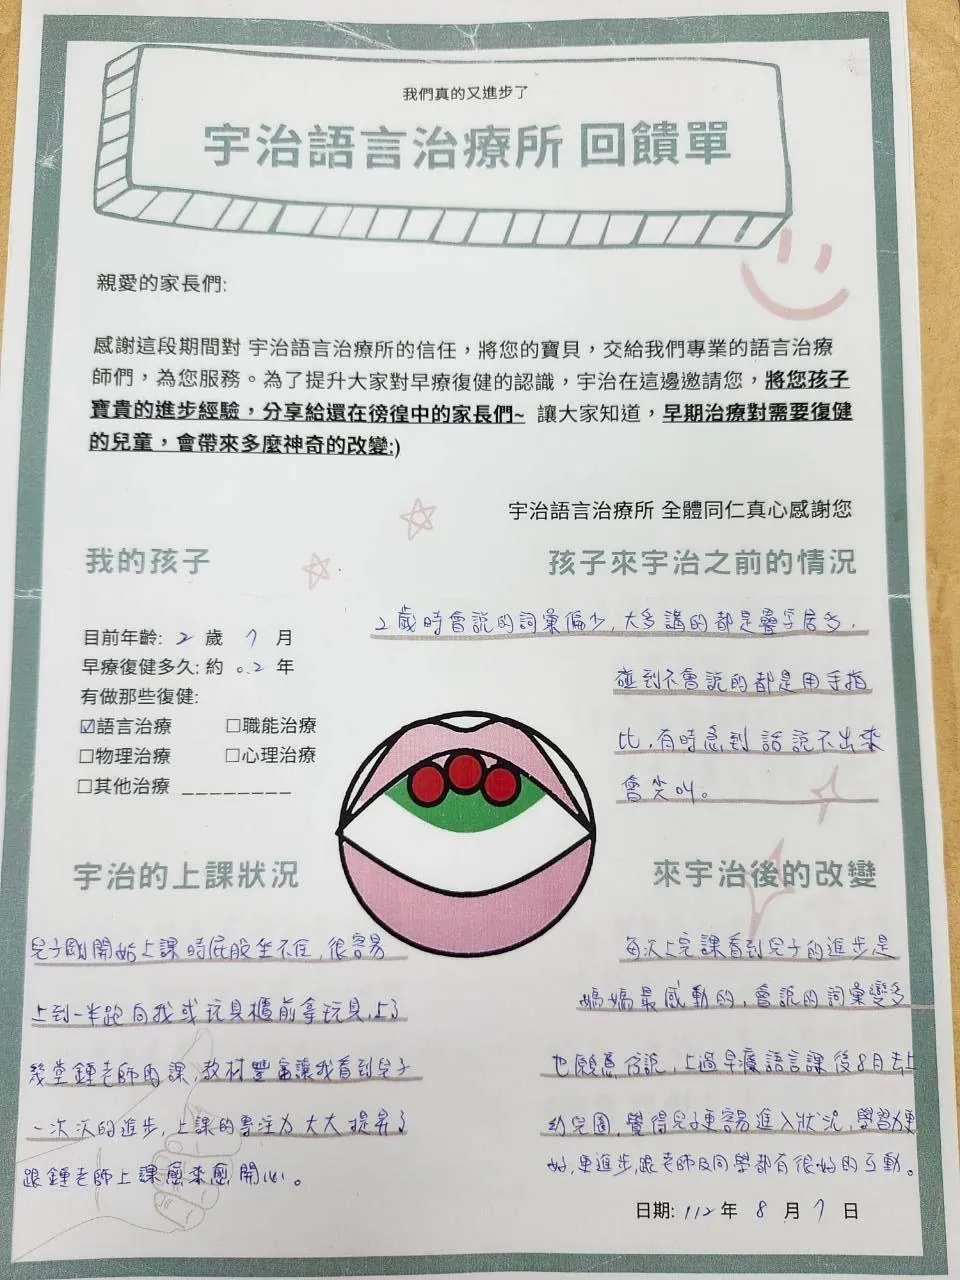 我們真的又進步了
宇治語言治療所 回饋單
親愛的家長們:
感謝這段期間對 宇治語言治療所的信任，將您的寶貝，交給我們專業的語言治療
師們，為您服務。為了提升大家對早療復健的認識，宇治在這邊邀請您，將您孩子
寶貴的進步經驗，分享給還在徬徨中的家長們~ 讓大家知道，早期治療對需要復健
的兒童，會帶來多麼神奇的改變:)
宇治語言治療所 全體同仁真心感謝您
我的孩子
目前年齡: 2 歲 7 月
早療復健多久: 約 0.2 年
有做那些復健:
☑語言治療 □職能治療
□物理治療 □心理治療
□其他治療 _________
孩子來宇治之前的情況
2歲時會說的詞彙偏少,大多講的都是疊字居多,
碰到不會說的都是用手指
比,有時急到話說不出來
會尖叫。
宇治的上課狀況
兒子剛開始上課時屁股坐不住,很容易
上到一半跑向我或玩具櫃前拿玩具,上了
幾堂鍾老師的課,教材豐富讓我看到兒子
一次次的進步,上課的專注力大大提昇了
跟鍾老師上課愈來愈開心。
來宇治後的改變
每次上完課看到兒子的進步是
媽媽最感動的,會說的詞彙變多
也願意仿說,上過早療語言課後8月去上
幼兒園,覺得兒子更容易進入狀況,學習力更
好,更進步,跟老師及同學都有很好的互動。
日期: 112 年 8 月 7 日